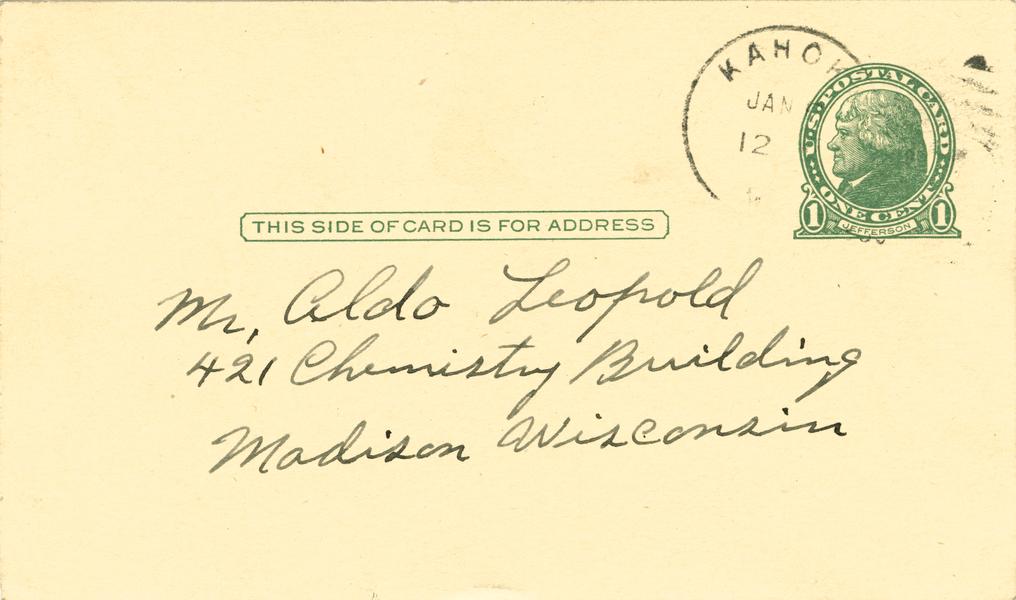 KAHO
JAN
12
U.S. POSTAL CARD
ONE CENT
1 JEFFERSON 1
THIS SIDE OF CARD IS FOR ADDRESS
Mr. Aldo Leopold
421 Chemistry Building
Madison Wisconsin